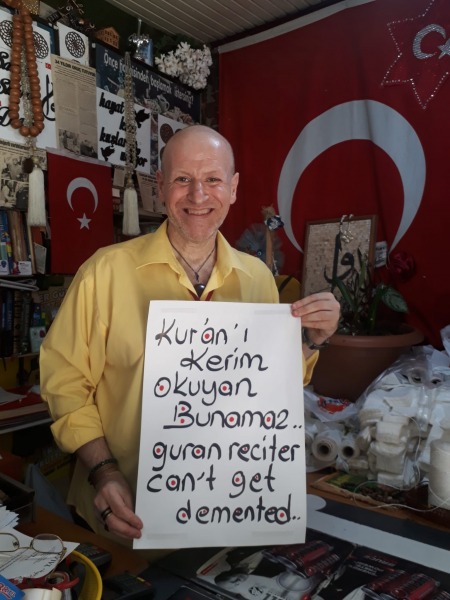 Önce
Kur'an'ı
Kerim
okuyan
Bunamaz..
guran reciter
can't get
demented..